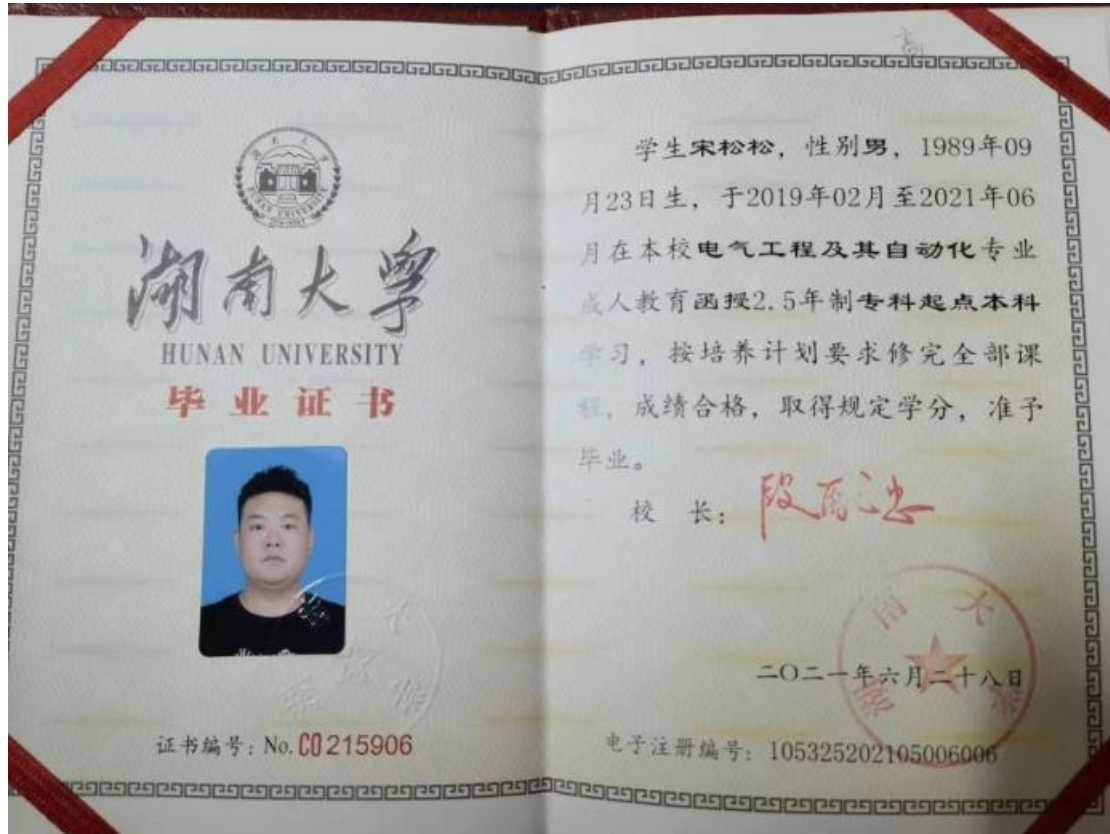 高
湖南大学
HUNAN UNIVERSITY
毕业证书
证书编号: No. C0215906
学生宋松松，性别男，1989年09
月23日生，于2019年02月至2021年06
月在本校电气工程及其自动化专业
成人教育函授2.5年制专科起点本科
学习，按培养计划要求修完全部课
程，成绩合格，取得规定学分，准予
毕业。
校 长:
二〇二一年六月二十八日
电子注册编号: 105325202105006006